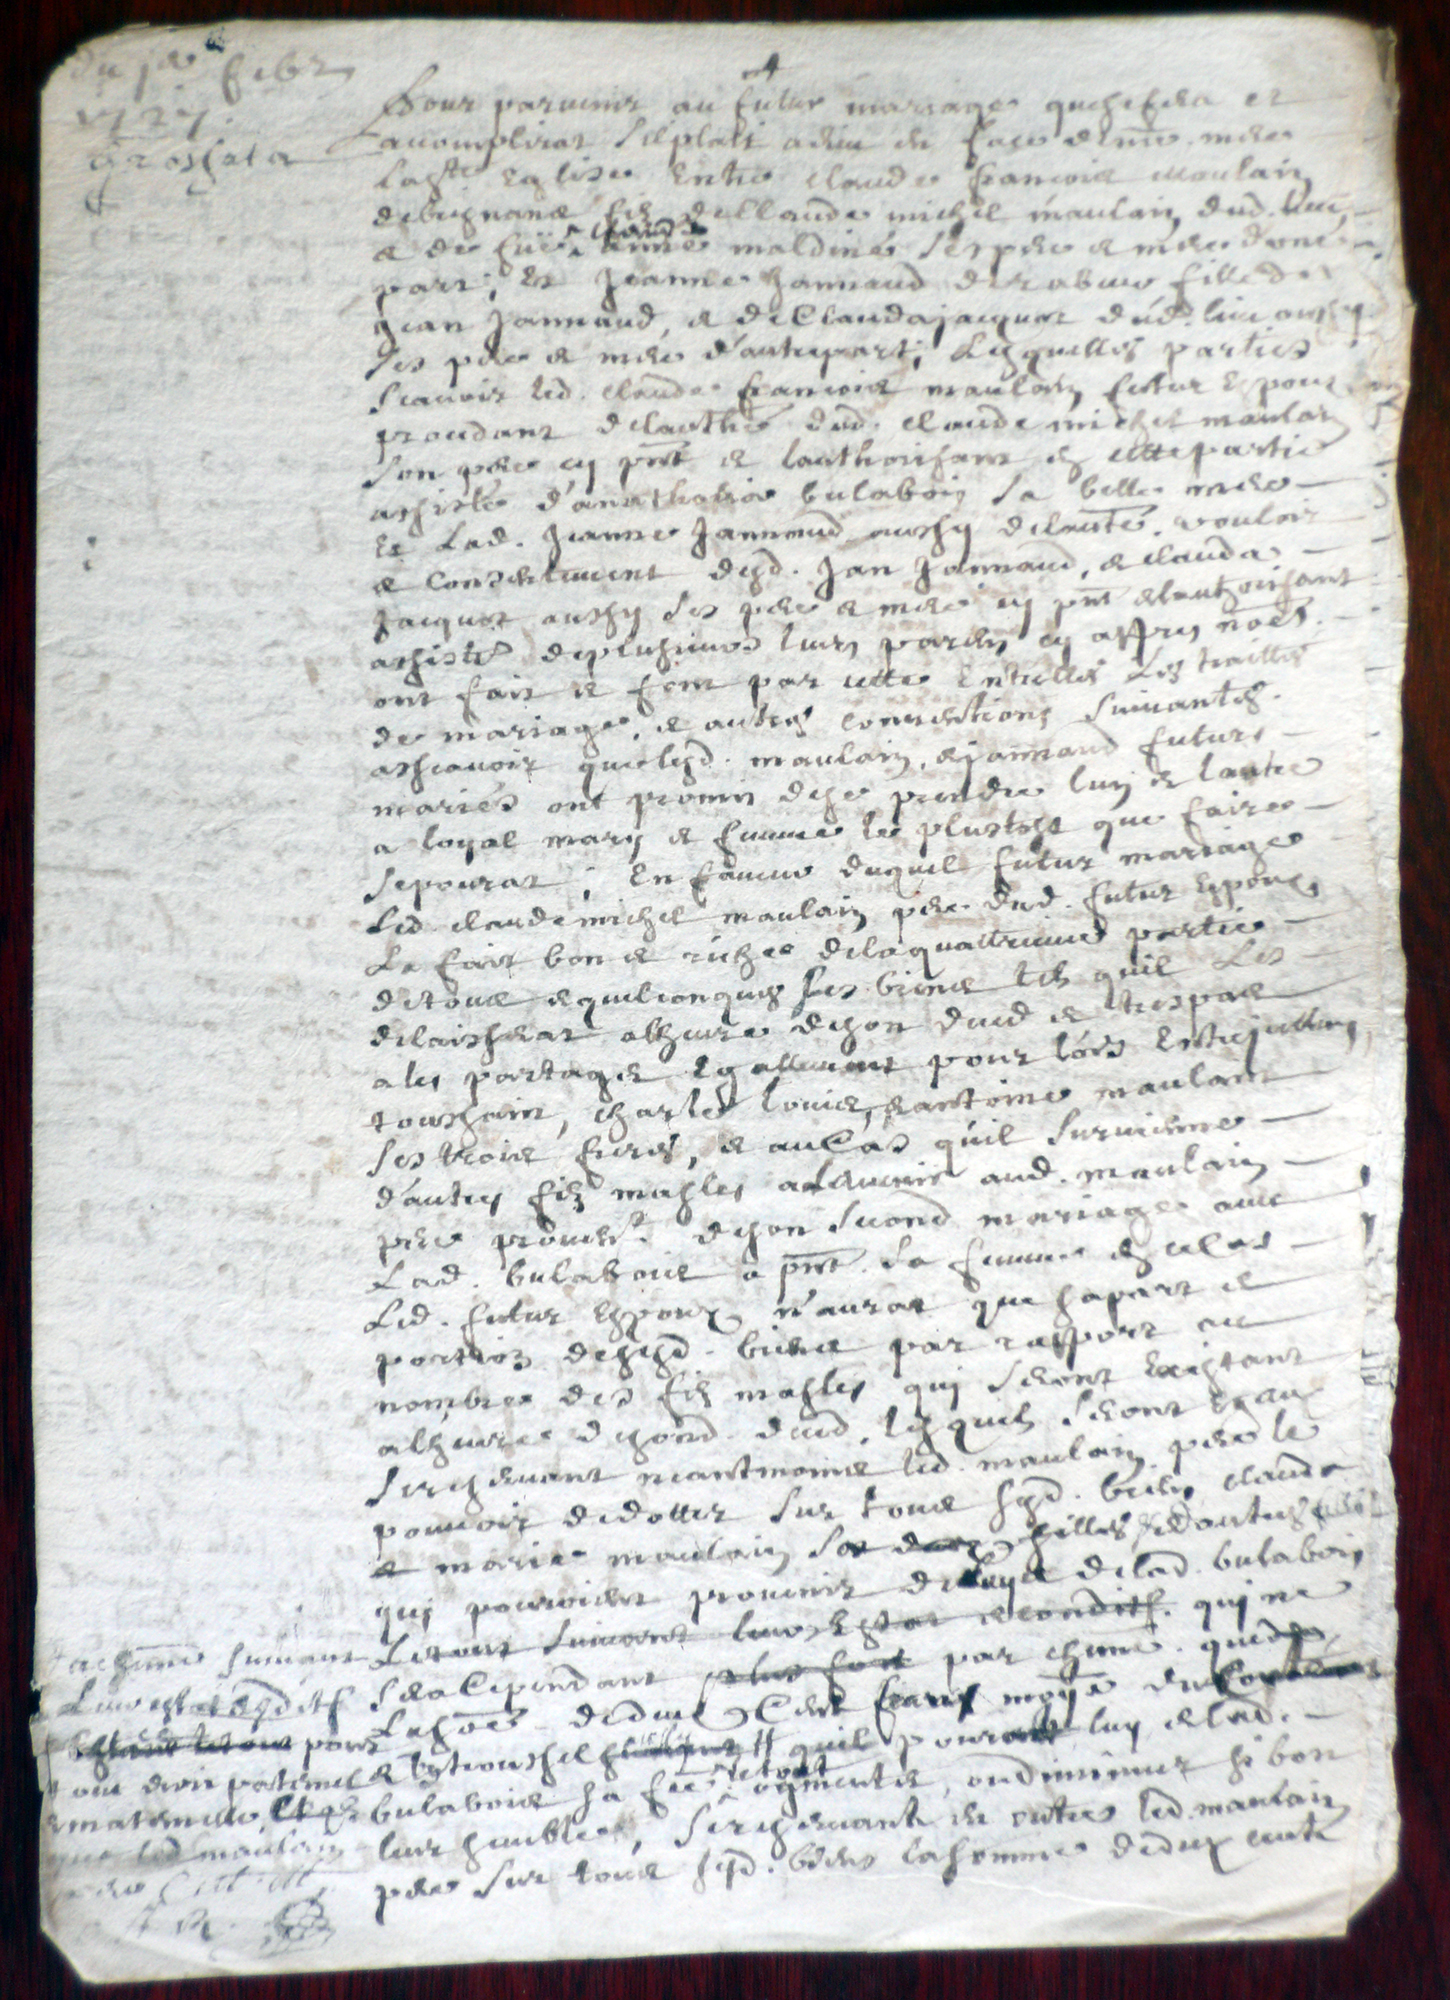 du je febr
1727.
Grossata
Pour parvenir au futur mariage que se fera et
accomplirat s'il plait a dieu en face de nre. mere
la ste Eglise Entre claude francois maulain
fils de Claude michel maulain dud. lieu
e de fue anne maldiné ses pere e mere d'une
part, Et Jeanne Jannaud fille de
Jean Jannaud, e de Clauda jacquot dud. lieu aussy
ses pere e mere d'autrepart; Lesquelles parties
scavoir led. claude francois maulain futur Espoux
procedant de lauthé dud. claude michel maulain
son pere cy pnt e lauthorisant en cette partie
assisté d'anathoria bulabois sa belle mere
Et Lad. Jeanne Jannaud aussy de lauthé. vouloir
e consentement desd. Jan Jannaud, e clauda
Jacquot aussy ses pere e mere cy pnt e lauthorisant
assisté de plusieurs leurs parens cy appres només.
ont fait e font par cette Entrelles Les traittés
de mariage, e autres conventions suivantes.
asscavoir que lesd. maulain, e jannaud futurs
mariés ont promis de se prendre lun e lautre
a loyal mary e femme le plustost que faire
se pourat; En faveur duquel futur mariage
Led. claude michel maulain pere dud. futur Espoux
La fait bon e riche de la quattrieme partie
de tous e quelconques ses biens tels qu'il Les
delaisserat a lheure de son deced e trespas
a les partager Egallement pour lors Entre
toussain, charle louis, e antoine maulain
ses trois freres, e au Cas qu'il survienne
d'autres fils masles a ladvenir aud. maulain
pere provent. de son second mariage avec
Lad. bulabois a pnt. sa femme en ce cas
Led. futur Espoux n'aurat que sa part e
portion desd. biens par rapport au
nombre des fils masles qui seront Existant
a lheure de sond. deced. lesquels seront Egaux
se reservant neantmoins led. maulain pere le
pouvoir de dotter sur tous sesd. biens clauda
e marie maulain filles e d'autres filles
qui pouroient provenir de luy e de lad. bulabois
Le tout suivant leur Estat e condition. qui ne
sera Cependant par chune. que de
La some de deux Cent frans moye
e trousselz qu'il pourat luy e lad.
bulabois sa fee. augmenter, ou diminuer si bon
leur semble, se reservant en outre led. maulain
pere sur tous sesd. biens la somme de deux cents
a chune suivant
Leur estat e condition
pour
tous droits paternel
e maternelle
que led maulain
pere